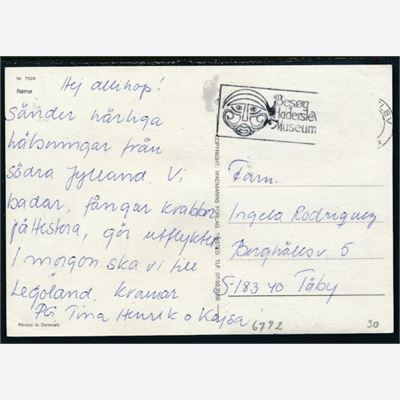 Nr. 7526
Rømø
Hej allihop!
Sänder härliga
hälsningar från
södra Jylland. Vi
badar, fångar krabbor
jättestora, gör utflykter
I morgon ska vi till
Legoland. Kramar
PG Tina Henrik o Kajsa
Printed in Denmark
COPYRIGHT: WADMANNS FORLAG, THISTED. TLF.
Besøg
Haderslev
Museum
Fam.
Ingela Rodriguez
Berghällsv. 5
S-183 40 Täby
6792
30